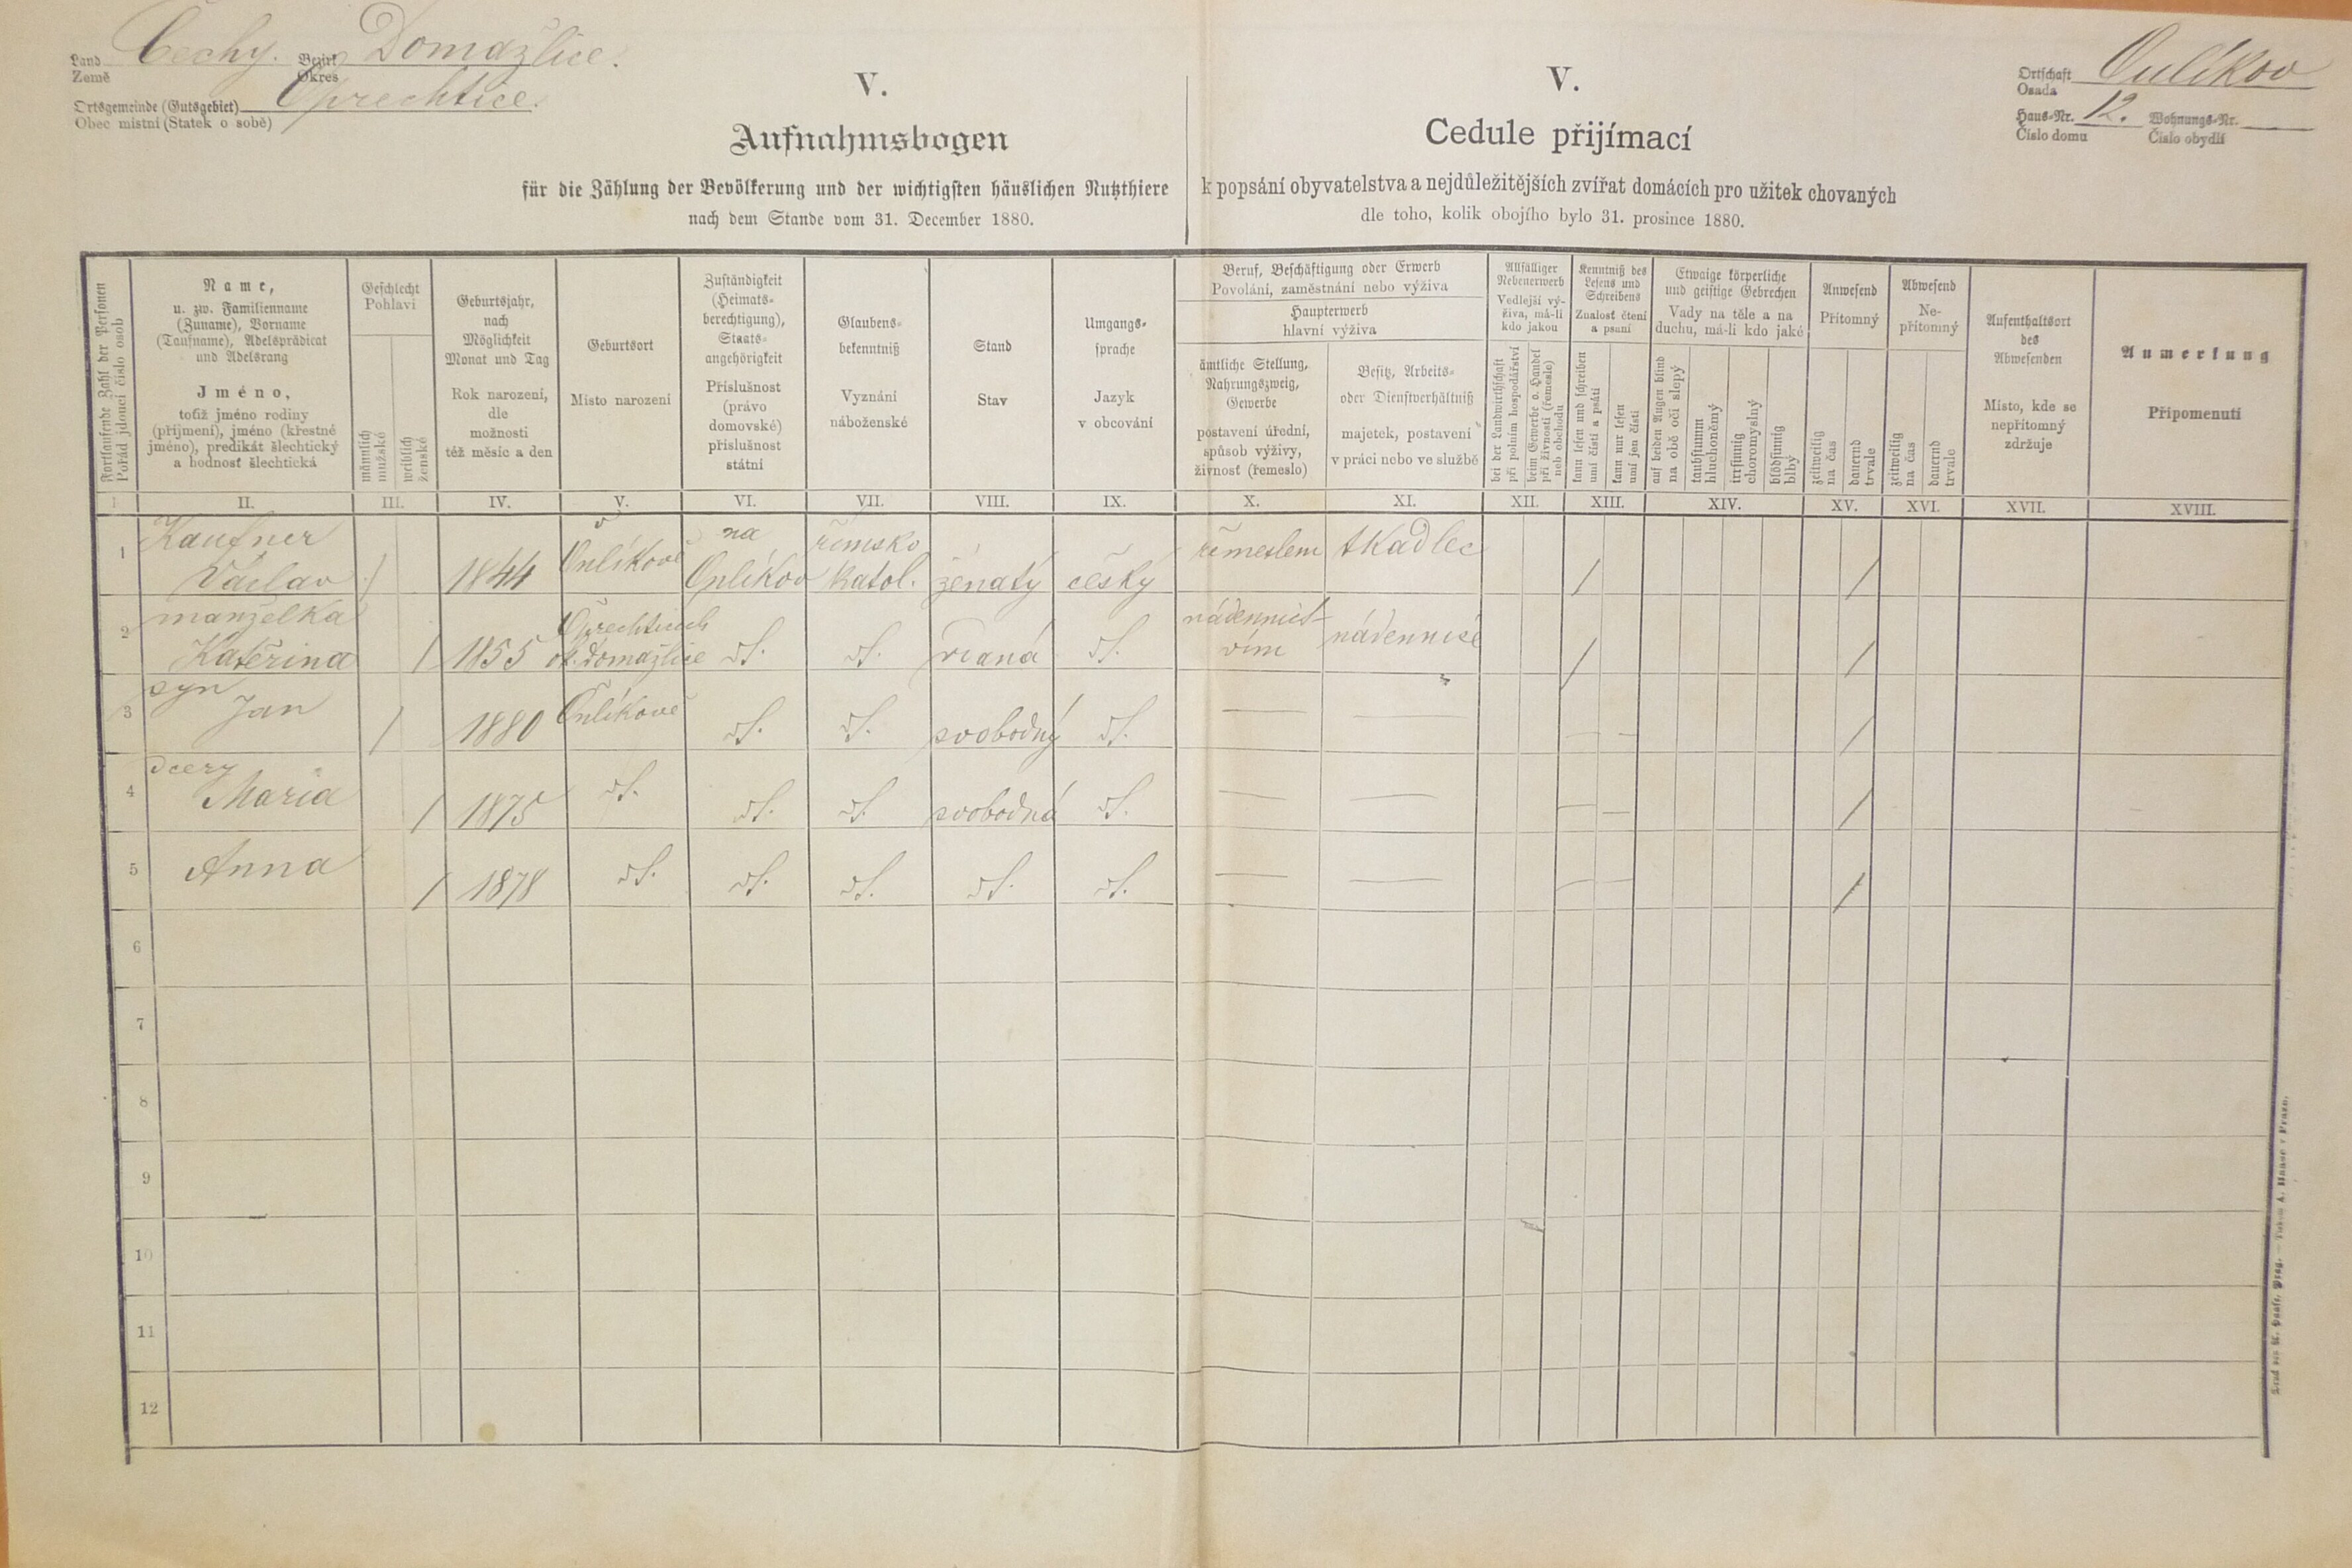 Land Čechy. Bezirk Domažlice.
Země Okres
Ortsgemeinde (Gutsgebiet) Oprechtice.
Obec místní (Statek o sobě)
V.
Aufnahmsbogen
für die Zählung der Bevölkerung und der wichtigsten häuslichen Nutzthiere
nach dem Stande vom 31. December 1880.
V.
Cedule přijímací
k popsání obyvatelstva a nejdůležitějších zvířat domácích pro užitek chovaných
dle toho, kolik obojího bylo 31. prosince 1880.
Ortschaft Oulíkov
Osada
Haus-Nr. 12. Wohnungs-Nr.
Číslo domu Číslo obydlí
Fortlaufende Zahl der Personen
Pořád jdoucí číslo osob
Name,
u. zw. Familienname
(Zuname), Vorname
(Taufname), Adelsprädicat
und Adelsrang
Jméno,
totiž jméno rodiny
(příjmení), jméno (křestné
jméno), predikát šlechtický
a hodnosť šlechtická
Geschlecht
Pohlaví
männlich
mužské
weiblich
ženské
Geburtsjahr,
nach
Möglichkeit
Monat und Tag
Rok narození,
dle
možnosti
též měsíc a den
Geburtsort
Místo narození
Zuständigkeit
(Heimats-
berechtigung),
Staats-
angehörigkeit
Příslušnost
(právo
domovské)
příslušnost
státní
Glaubens-
bekenntniß
Vyznání
náboženské
Stand
Stav
Umgangs-
sprache
Jazyk
v obcování
Beruf, Beschäftigung oder Erwerb
Povolání, zaměstnání nebo výživa
Haupterwerb
hlavní výživa
ämtliche Stellung,
Nahrungszweig,
Gewerbe
postavení úřední,
spůsob výživy,
živnosť (řemeslo)
Besitz, Arbeits-
oder Dienstverhältniß
majetek, postavení
v práci nebo ve službě
Allfälliger
Nebenerwerb
Vedlejší vý-
živa, má-li
kdo jakou
bei der Landwirthschaft
při polním hospodářství
beim Gewerbe o. Handel
při živnosti (řemesle)
neb obchodu
Kenntniß des
Lesens und
Schreibens
Znalosť čtení
a psaní
kann lesen und schreiben
umí čísti a psáti
kann nur lesen
umí jen čísti
Etwaige körperliche
und geistige Gebrechen
Vady na těle a na
duchu, má-li kdo jaké
auf beiden Augen blind
na obě oči slepý
taubstumm
hluchoněmý
irrsinnig
choromyslný
blödsinnig
blbý
Anwesend
Přítomný
zeitweilig
na čas
dauernd
trvale
Abwesend
Ne-
přítomný
zeitweilig
na čas
dauernd
trvale
Aufenthaltsort
des
Abwesenden
Místo, kde se
nepřítomný
zdržuje
Anmerkung
Připomenutí
I. II. III. IV. V. VI. VII. VIII. IX. X. XI. XII. XIII. XIV. XV. XVI. XVII. XVIII.
Kaufner v na římsko řemeslem tkadlec
1 Václav / 1844 Oulíkově Oulíkov katol. ženatý český / /
manželka Oprechticích nádennict-
2 Kateřina / 1855 ok. Domažlice dt. dt. vdaná dt. vím nádennice / /
syn
3 Jan / 1880 Oulíkově dt. dt. svobodný dt. — — — — /
dcery
4 Maria / 1875 dt. dt. dt. svobodná dt. — — — — /
5 Anna / 1878 dt. dt. dt. dt. dt. — — — — /
6
7
8
9
10
11
12